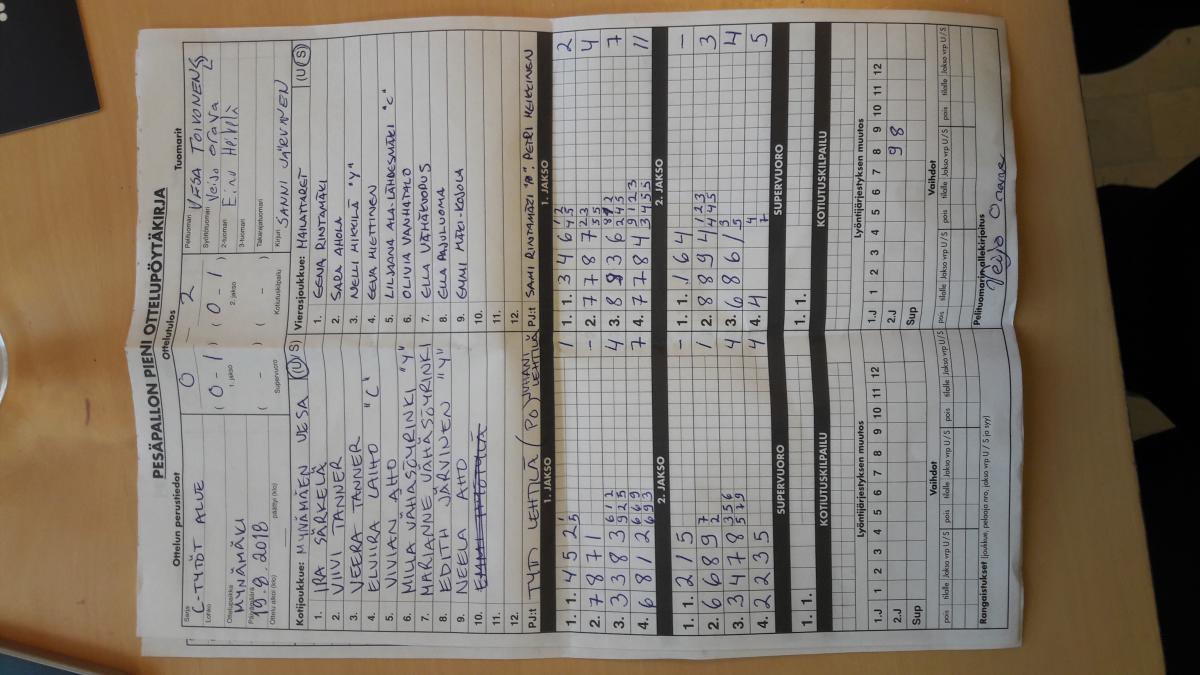 PESÄPALLON PIENI OTTELUPÖYTÄKIRJA
Ottelun perustiedot
Ottelutulos
Tuomarit
Sarja
C-TYTÖT ALUE
Lohko
Ottelupaikka
MYNÄMÄKI
Päivämäärä
19.9.2018
Ottelu alkoi (klo)
päättyi (klo)
0 - 2
( 0 - 1 ) ( 0 - 1 )
1. jakso
2. jakso
( - ) ( - )
Supervuoro
Kotiutuskilpailu
Pelituomari
VESA TOIVONEN
Syöttötuomari
Veijo Orava
2-tuomari
Eino Heikilä
3-tuomari
Takarajatuomari
Kirjuri
SANNI JÄRVINEN
Kotijoukkue: MYNÄMÄEN VESA (U/S)
1. IRA SÄRKELÄ
2. VIIVI TANNER
3. VEERA TANNER
4. ELVIIRA LAIHO "C"
5. VIVIAN AHO
6. MILLA VÄHÄSÖYRINKI "Y"
7. MARIANNE VÄHÄSÖYRINKI
8. EDITH JÄRVINEN "Y"
9. NEELA AHO
10.
11.
12.
PJ:t TYTTI LEHTILÄ (PO) JUHANI LEHTILÄ
Vierasjoukkue: MAILATTARET (U/S)
1. EEVA RINTAMÄKI
2. SARA AHOLA
3. NELLI MIKKILÄ "Y"
4. EEVA HIETTINEN
5. LILJAANA ALA-LÄHDESMÄKI "C"
6. OLIVIA VANHATALO
7. ELLA VÄHÄKUOPUS
8. ELLA PAJULUOMA
9. EMMI MÄKI-KOJOLA
10.
11.
12.
PJ:t SAMI RINTAMÄKI "P", PETRI HEIKKINEN
1. JAKSO
1. 1. 4 5 2 1 5 1
2. 7 8 7 1 -
3. 3 3 8 3 6 1 2 9 2 5 4
4. 6 8 1 2 6 6 9 6 9 3 7
2. JAKSO
1. 1. 2 1 5 -
2. 6 6 8 9 7 2 1
3. 3 4 7 8 3 5 6 5 7 9 4
4. 2 2 3 5 4
SUPERVUORO
1. 1.
KOTIUTUSKILPAILU
1. JAKSO
1. 1. 3 4 6 1 2 4 5 2
2. 7 7 8 7 2 3 5 5 4
3. 8 8 3 6 8 1 2 2 4 5 7
4. 7 7 8 4 9 1 2 3 3 4 5 5 11
2. JAKSO
1. 1. 1 6 4 -
2. 8 8 9 4 1 2 3 4 4 5 3
3. 6 8 6 1 3 5 4
4. 4 4 7 5
SUPERVUORO
1. 1.
KOTIUTUSKILPAILU
Lyöntijärjestyksen muutos
1 2 3 4 5 6 7 8 9 10 11 12
1.J
2.J
Sup
Vaihdot
pois tilalle Jakso vrp U / S pois tilalle Jakso vrp U / S pois tilalle Jakso vrp U / S
Rangaistukset (joukkue, pelaaja nro, jakso vrp U / S ja syy)
Lyöntijärjestyksen muutos
1 2 3 4 5 6 7 8 9 10 11 12
1.J
2.J 9 8
Sup
Vaihdot
pois tilalle Jakso vrp U / S pois tilalle Jakso vrp U / S pois tilalle Jakso vrp U / S
Pelituomarin allekirjoitus
Veijo Orava